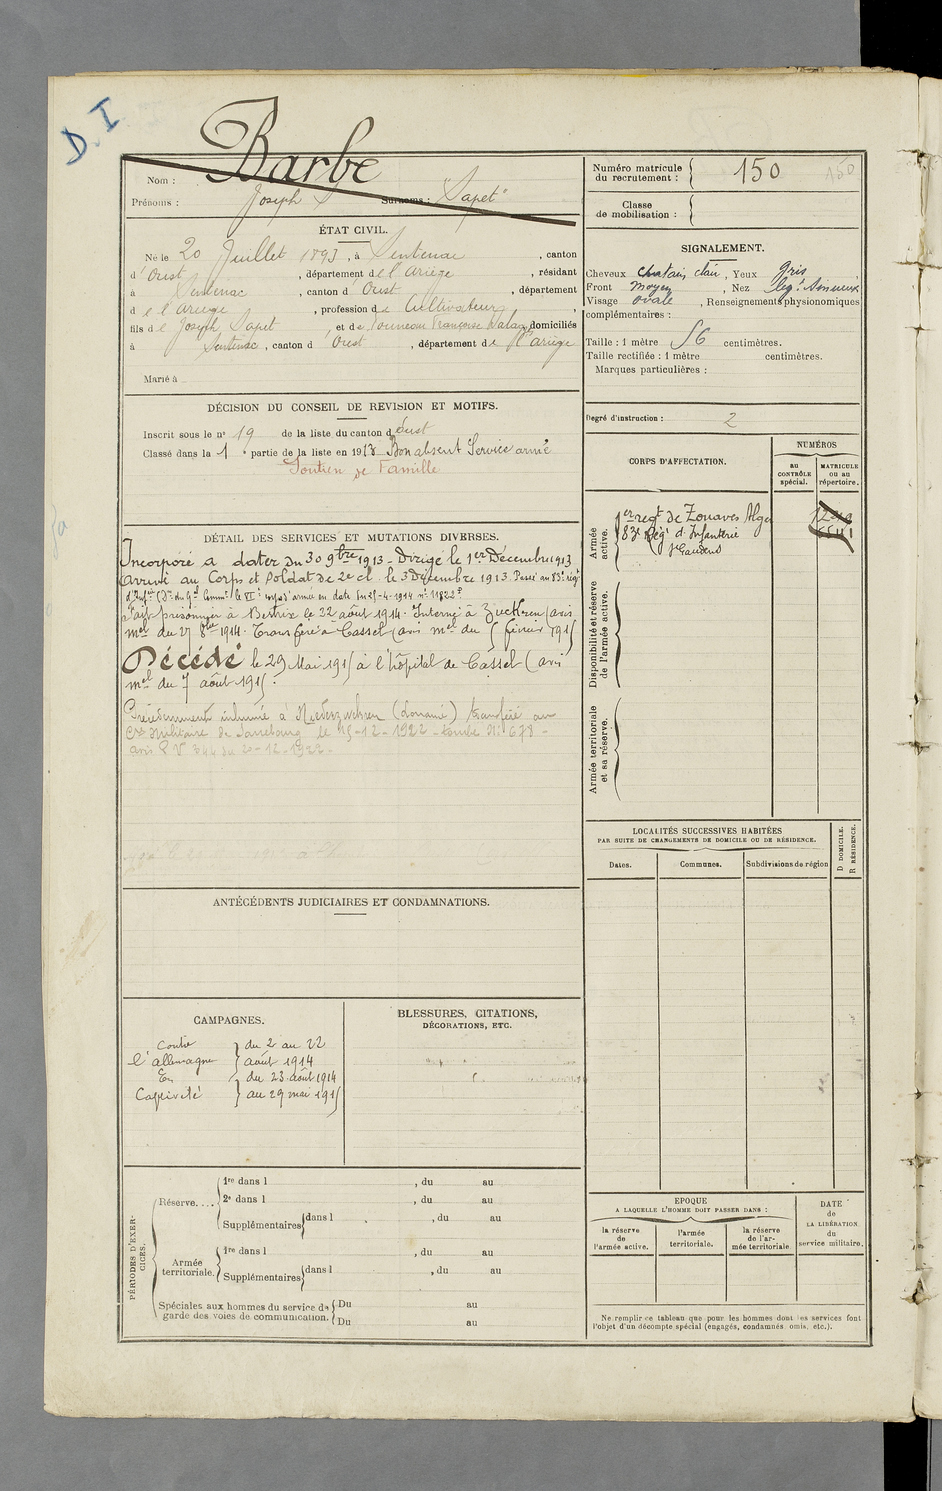 D. I
Barbe
Nom :
Prénoms : Joseph Surnoms : "Sapet"
ÉTAT CIVIL.
Né le 20 Juillet 1893, à Sentenac, canton
d'Oust, département de l'Ariège, résidant
à Sentenac, canton d'Oust, département
de l'Ariège, profession de Cultivateur,
fils de Joseph Sapet et de Françoise domiciliés
à Sentenac, canton d'Oust, département de l'Ariège
Marié à
DÉCISION DU CONSEIL DE REVISION ET MOTIFS.
Inscrit sous le n° 19 de la liste du canton d'Oust
Classé dans la 1e partie de la liste en 1913 Bon absent Service armé
Soutien de Famille
DÉTAIL DES SERVICES ET MUTATIONS DIVERSES.
Incorporé à dater du 30 9bre 1913 - Dirigé le 1er Décembre 1913
Arrivé au Corps et Soldat de 2e cl. le 3 Décembre 1913. Passé au 83e régt
d'Infrie
Fait prisonnier à Bertrix le 22 août 1914. Interné à (avis
mel du 27 8bre 1914. Transféré à Cassel (avis mel du 5 février 1915
Décédé le 29 Mai 1915 à l'hôpital de Cassel (avis
mel du 7 août 1915.
Précédemment inhumé à Niederzwehren transféré au
Cre militaire de Sarrebourg le 15-12-1922 - tombe N° 678 -
avis P.V. 344 du 20-12-1922 -
ANTÉCÉDENTS JUDICIAIRES ET CONDAMNATIONS.
CAMPAGNES.
Contre } du 2 au 22
l'allemagne } août 1914
En } du 23 août 1914
Captivité } au 29 mai 1915
BLESSURES, CITATIONS,
DÉCORATIONS, ETC.
PÉRIODES D'EXER-
CICES.
Réserve....
1re dans l , du au
2e dans l , du au
Supplémentaires dans l , du au
Armée
territoriale.
1re dans l , du au
Supplémentaires dans l , du au
Spéciales aux hommes du service de
garde des voies de communication.
Du au
Du au
Numéro matricule
du recrutement : 150 150
Classe
de mobilisation :
SIGNALEMENT.
Cheveux chatain clair, Yeux gris
Front moyen, Nez leg' sinueux
Visage ovale, Renseignements physionomiques
complémentaires :
Taille : 1 mètre 56 centimètres.
Taille rectifiée : 1 mètre centimètres.
Marques particulières :
Degré d'instruction : 2
CORPS D'AFFECTATION.
NUMÉROS
AU
CONTRÔLE
spécial.
MATRICULE
ou au
répertoire.
Armée
active.
1er regt de Zouaves Alger
83e Régt d'Infanterie
St Gaudens
Disponibilité et réserve
de l'armée active.
Armée territoriale
et sa réserve.
LOCALITÉS SUCCESSIVES HABITÉES
PAR SUITE DE CHANGEMENTS DE DOMICILE OU DE RÉSIDENCE.
Dates.
Communes.
Subdivisions de région
D DOMICILE.
R RÉSIDENCE.
EPOQUE
A LAQUELLE L'HOMME DOIT PASSER DANS :
la réserve
de
l'armée active.
l'armée
territoriale.
la réserve
de l'ar-
mée territoriale.
DATE
de
LA LIBÉRATION
du
service militaire.
Ne remplir ce tableau que pour les hommes dont les services font
l'objet d'un décompte spécial (engagés, condamnés, omis, etc.).